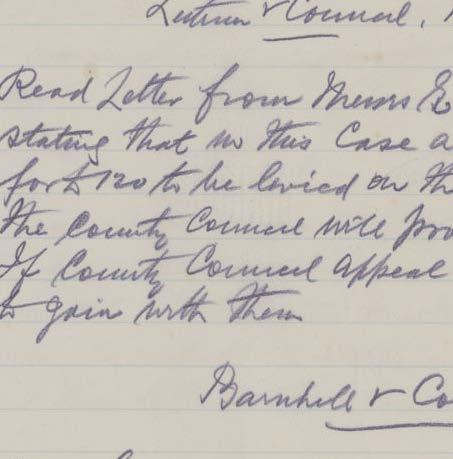 & Council,
Read Letter from Messrs E
stating that in this Case a
for £120 to be levied on th
the County Council will pro
If County Council appeal
to gain with them
Barnhill & Co